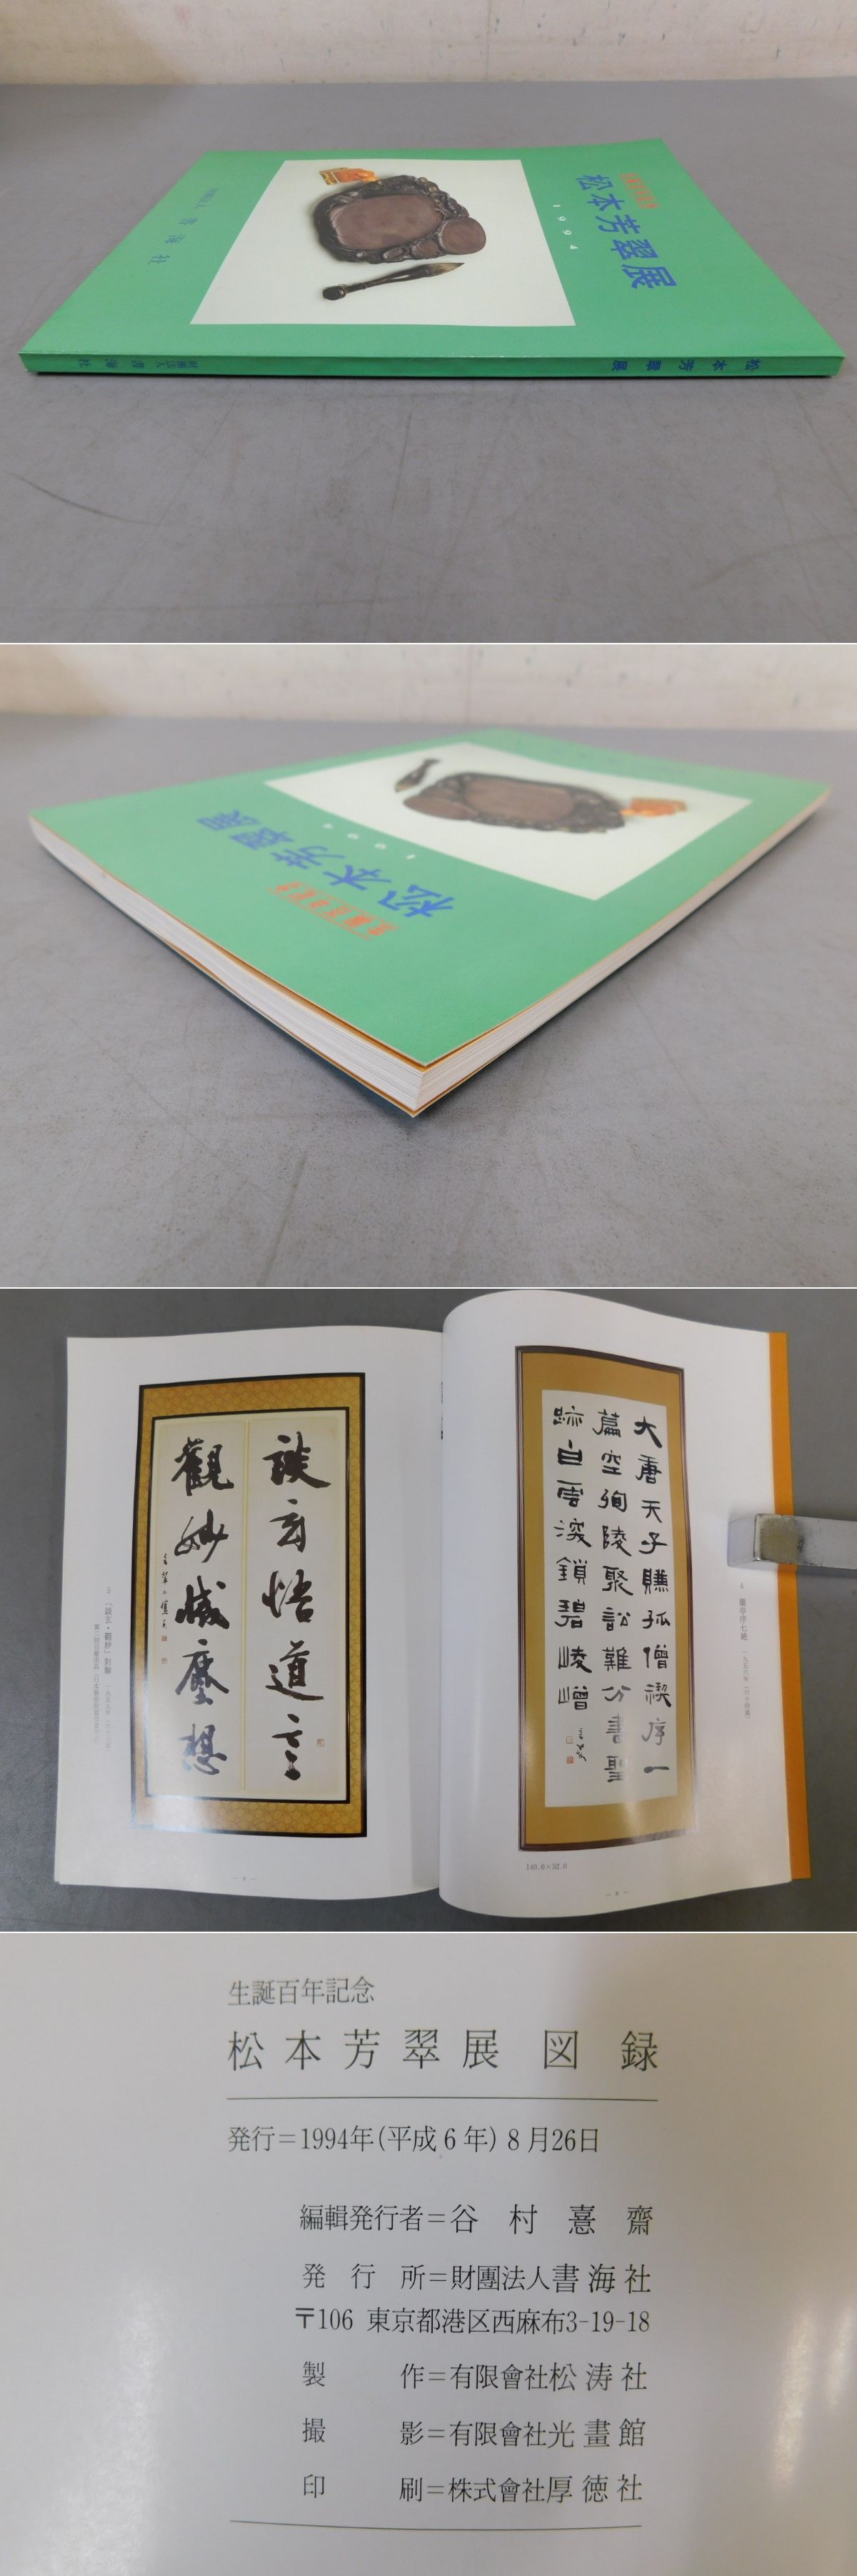 松本芳翠展
1994
財團法人 書海社
松本芳翠展
財團法人 書海社
生誕百年記念
松本芳翠展
1994
大唐天子賺孤僧禊序一
篇空殉陵聚訟難分書聖
跡白雲深鎖碧崚嶒
4 蘭亭序七絶 一九五六年
140.0×52.0
談玄悟道言
觀妙滅塵想
5 「談玄・觀妙」對聯 一九五九年
生誕百年記念
松本芳翠展 図録
発行=1994年(平成6年)8月26日
編輯発行者=谷村憙齋
発行所=財團法人書海社
〒106 東京都港区西麻布3-19-18
製作=有限會社松涛社
撮影=有限會社光畫館
印刷=株式會社厚徳社